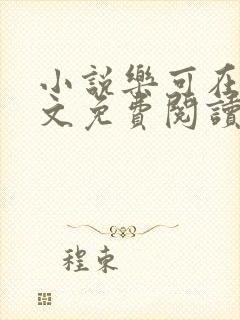 小說樂可在
文免費閱讀
程束